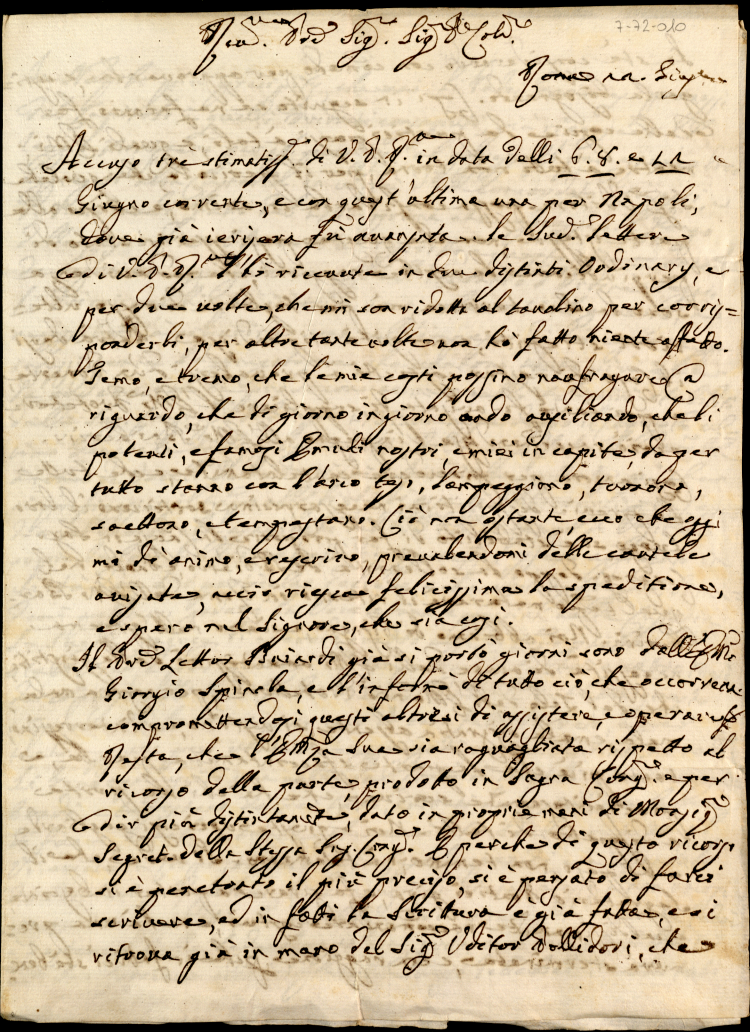 7-72-010
Rev. Pre Sig. Sig. P. Col.
Roma 22. Giug.
Accuso trè stimatiss. di V. P. R. in data delli 6. 8. e 12
Giugno corrente, e con quest'ultima una per Napoli,
dove già ierisera fù avanzata. le sud. lettere
di V. P. R. l'hò ricevute in due distinti Ordinarij, e
per due volte, che mi son ridotto al tavolino per corris=
ponderli, per altretante volte non hò fatto niente affatto.
Temo, e tremo, che le mie costì possino naufragare a
riguardo, che di giorno in giorno vado, che li
potenti, e famosi Emuli nostri, e miei in capite, da per
tutto stanno con l'arco teso, lampeggiono, tuonono,
saettono, e tempestano. Ciò non ostante, ecco che oggi
mi dò animo, e rescrivo, prevalendomi delle cautele
avisate, acciò riesca felicissima la speditione,
e spero nel Signore, che sia così.
Il Pre Lettor Buiardi già si portò giorni sono dall'Emo
Giorgio Spinola, e l'informò di tutto ciò, che occorreva
compromettendosi questi altresì di assistere, e operare
Resta, che l'Emza Sua sia raguagliata rispetto al
ricorso della parte, prodotto in Sagra Cong. e per
dir più distintamte, dato in proprie mani di Monsig.
Segret. della Stessa Sag. Cong. E perche di questo ricorso
si è penetrato il più preciso, si è pensato di farci
scrivere, ed in fatti la Scrittura è già fatta, e si
ritrova già in mano del Sig. Uditor Pollidori, che